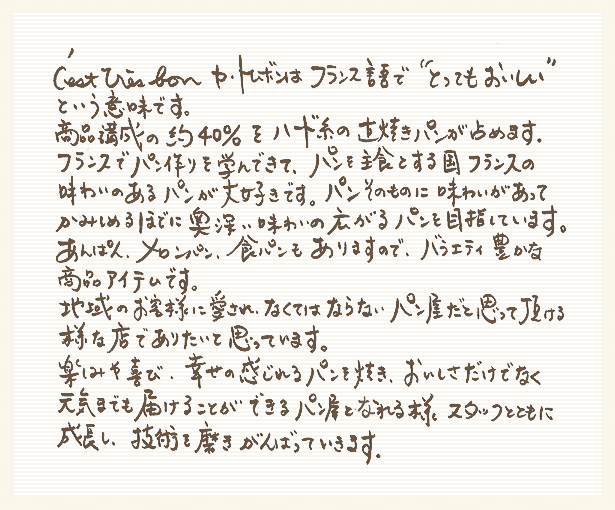 C'est très bon セ・トレボンは フランス語で "とってもおいしい"
という意味です。
商品構成の約40%をハード系の直焼きパンが占めます。
フランスでパン作りを学んできて、パンを主食とする国フランスの
味わいのあるパンが大好きです。パンそのものに味わいがあって
かみしめるほどに奥深い味わいの広がるパンを目指しています。
あんぱん、メロンパン、食パンもありますので、バラエティ豊かな
商品アイテムです。
地域のお客様に愛され、なくてはならないパン屋だと思って頂ける
様な店でありたいと思っています。
楽しみや喜び、幸せの感じれるパンを焼き、おいしさだけでなく
元気までも届けることができるパン屋となれる様、スタッフとともに
成長し、技術を磨きがんばっていきます。